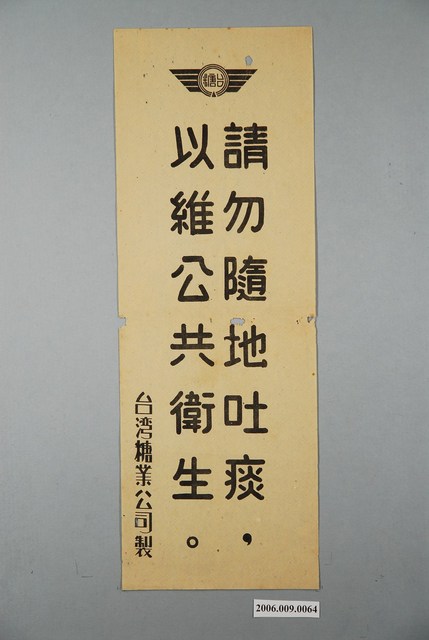 台糖
請勿隨地吐痰，
以維公共衛生。
台湾糖業公司製
2006.009.0064